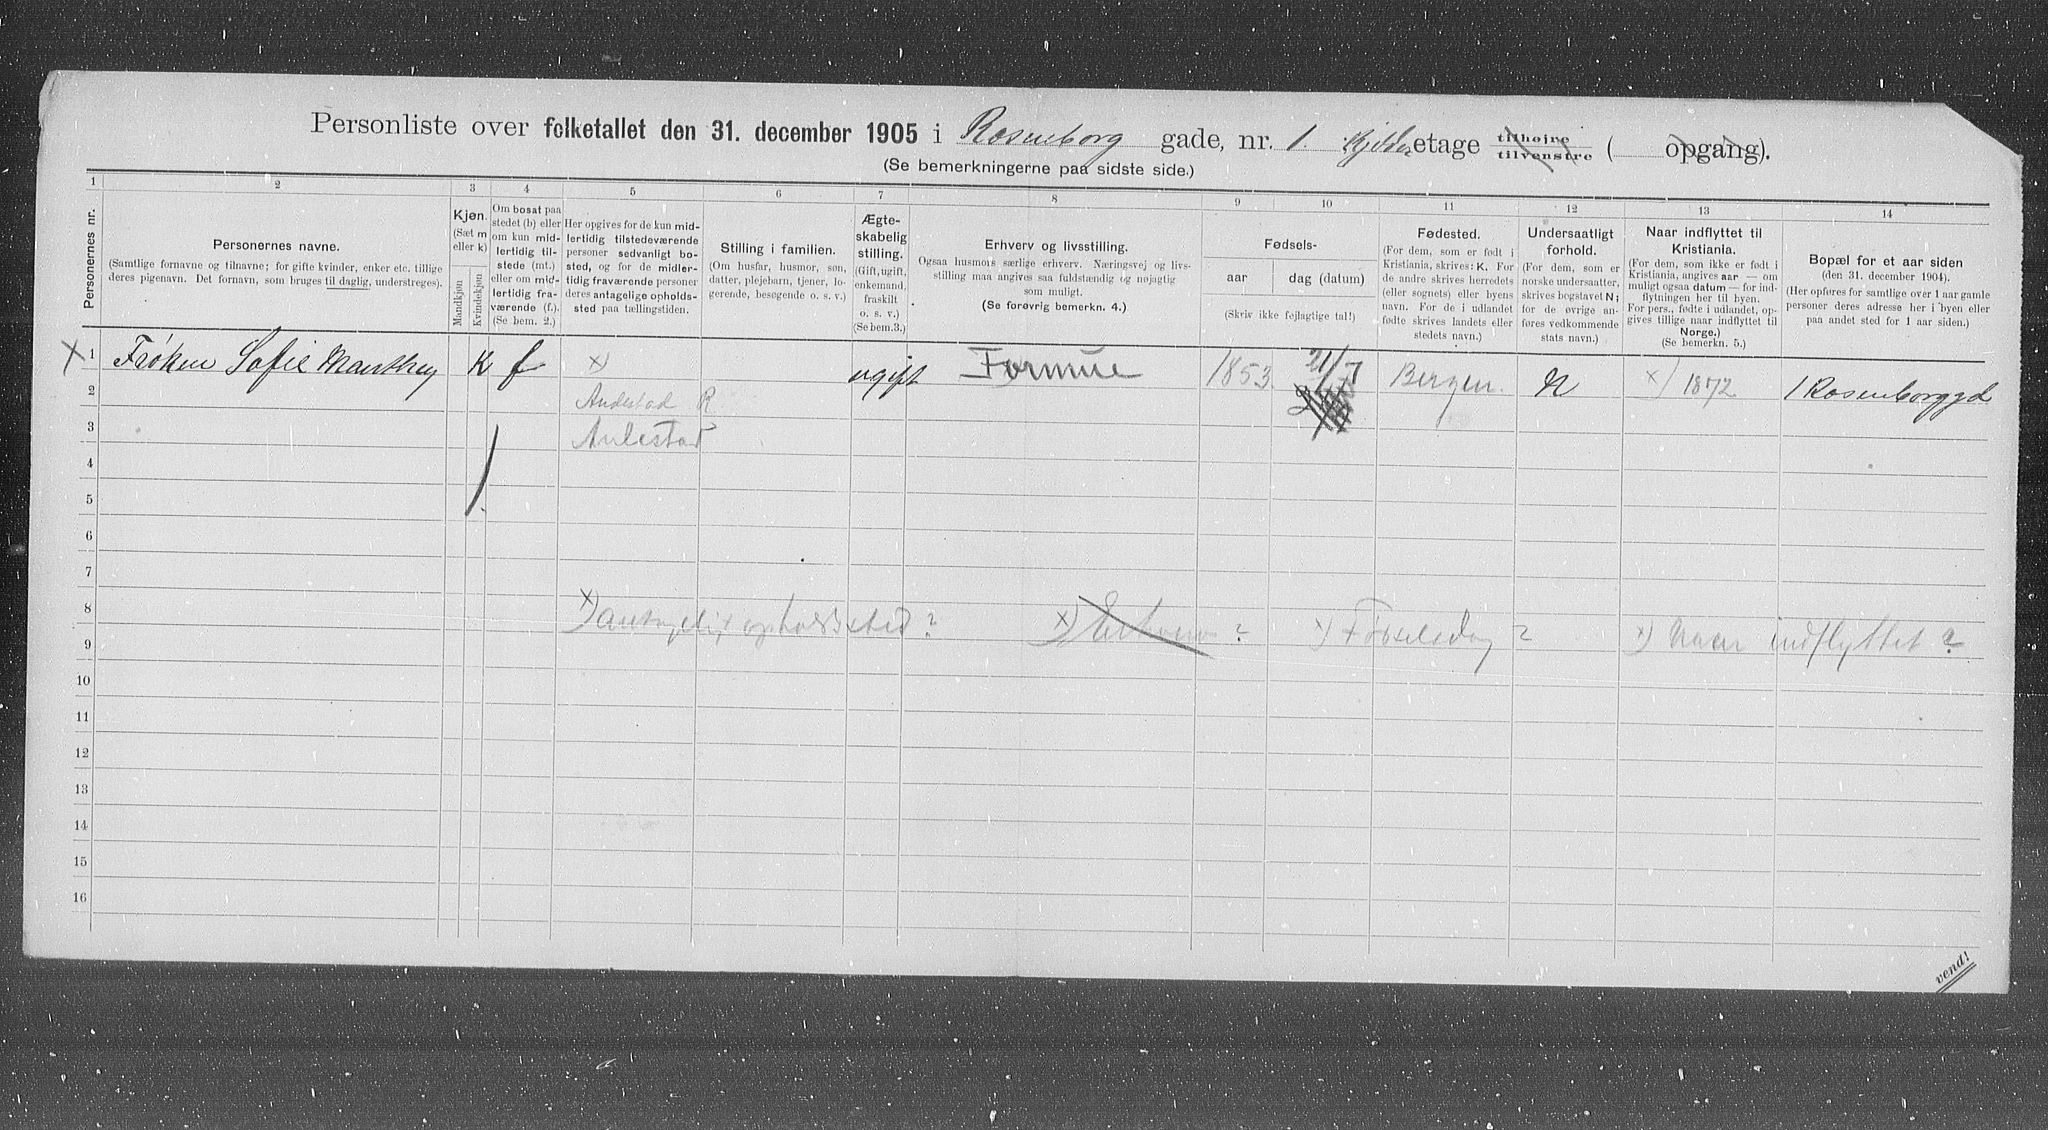 Personliste over folketallet den 31. december 1905 i Rosenborg gade, nr. 1. Kjelder etage tilhøire tilvenstre ( opgang).
(Se bemerkningerne paa sidste side.)
1 2 3 4 5 6 7 8 9 10 11 12 13 14
Personernes nr.
Personernes navne.
(Samtlige fornavne og tilnavne; for gifte kvinder, enker etc. tillige
deres pigenavn. Det fornavn, som bruges til daglig, understreges).
Kjøn.
(Sæt m
eller k)
Mandkjøn
Kvindekjøn
Om bosat paa
stedet (b) eller
om kun mid-
lertidig til-
stede (mt.)
eller om mid-
lertidig fra-
værende (f.).
(Se bem. 2.)
Her opgives for de kun mid-
lertidig tilstedeværende
personer sedvanligt bo-
sted, og for de midler-
tidig fraværende personer
deres antagelige opholds-
sted paa tællingstiden.
Stilling i familien.
(Om husfar, husmor, søn,
datter, plejebarn, tjener, lo-
gerende, besøgende o. s. v.)
Ægte-
skabelig
stilling.
(Gift, ugift,
enkemand,
fraskilt
o. s. v.)
(Se bem. 3.)
Erhverv og livsstilling.
Ogsaa husmors særlige erhverv. Næringsvej og livs-
stilling maa angives saa fuldstændig og nøjagtig
som muligt.
(Se forøvrig bemerkn. 4.)
Fødsels-
aar
dag (datum)
(Skriv ikke fejlagtige tal!)
Fødested.
(For dem, som er født i
Kristiania, skrives: K. For
de andre skrives herredets
(eller sognets) eller byens
navn. For de i udlandet
fødte skrives landets eller
stedets navn.)
Undersaatligt
forhold.
(For dem, som er
norske undersaatter,
skrives bogstavet N;
for de øvrige an-
føres vedkommende
stats navn.)
Naar indflyttet til
Kristiania.
(For dem, som ikke er født i
Kristiania, angives aar — om
muligt ogsaa datum — for ind-
flytningen her til byen.
For pers., fødte i udlandet, op-
gives tillige naar indflyttet til
Norge.)
(Se bemerkn. 5.)
Bopæl for et aar siden
(den 31. december 1904).
(Her opføres for samtlige over 1 aar gamle
personer deres adresse her i byen eller
paa andet sted for 1 aar siden.)
x 1 Frøken Sofie Manthey K f x) ugift Formue 1853. 21/7 Bergen. N x) 1872 1 Rosenborggd
2 Andestad R
3 Aulestad
4
5
6
7
8 x) antagelig opholdssted? x) Erhverv? x) Fødselsdag? x) Naar indflyttet?
9
10
11
12
13
14
15
16
vend!